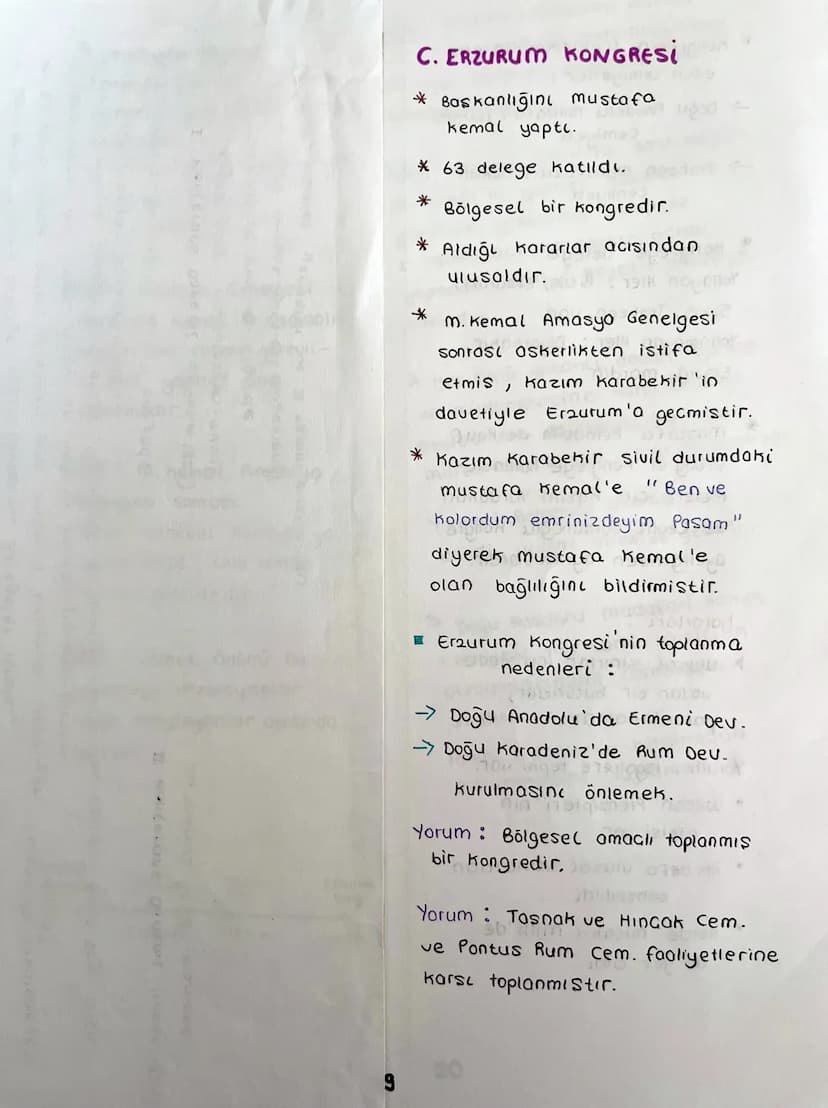 C. ERZURUM KONGRESİ
* Başkanlığını mustafa
kemal yaptı.
* 63 delege katıldı.
* Bölgesel bir kongredir.
* Aldığı kararlar acısından
ulusaldır.
* m. Kemal Amasya Genelgesi
sonrası askerlikten istifa
etmis , Kazım Karabekir 'in
davetiyle Erzurum'a gecmistir.
* Kazım Karabekir sivil durumdaki
mustafa Kemal'e " Ben ve
kolordum emrinizdeyim Pasam"
diyerek mustafa Kemal'e
olan bağlılığını bildirmistir.
▪ Erzurum Kongresi'nin toplanma
nedenleri :
→ Doğu Anadolu'da Ermeni Dev.
→ Doğu Karadeniz'de Rum Dev.
kurulmasını önlemek.
Yorum : Bölgesel amaclı toplanmış
bir kongredir.
Yorum : Tasnak ve Hıncak Cem.
ve Pontus Rum Cem. faaliyetlerine
karsı toplanmıştır.
9